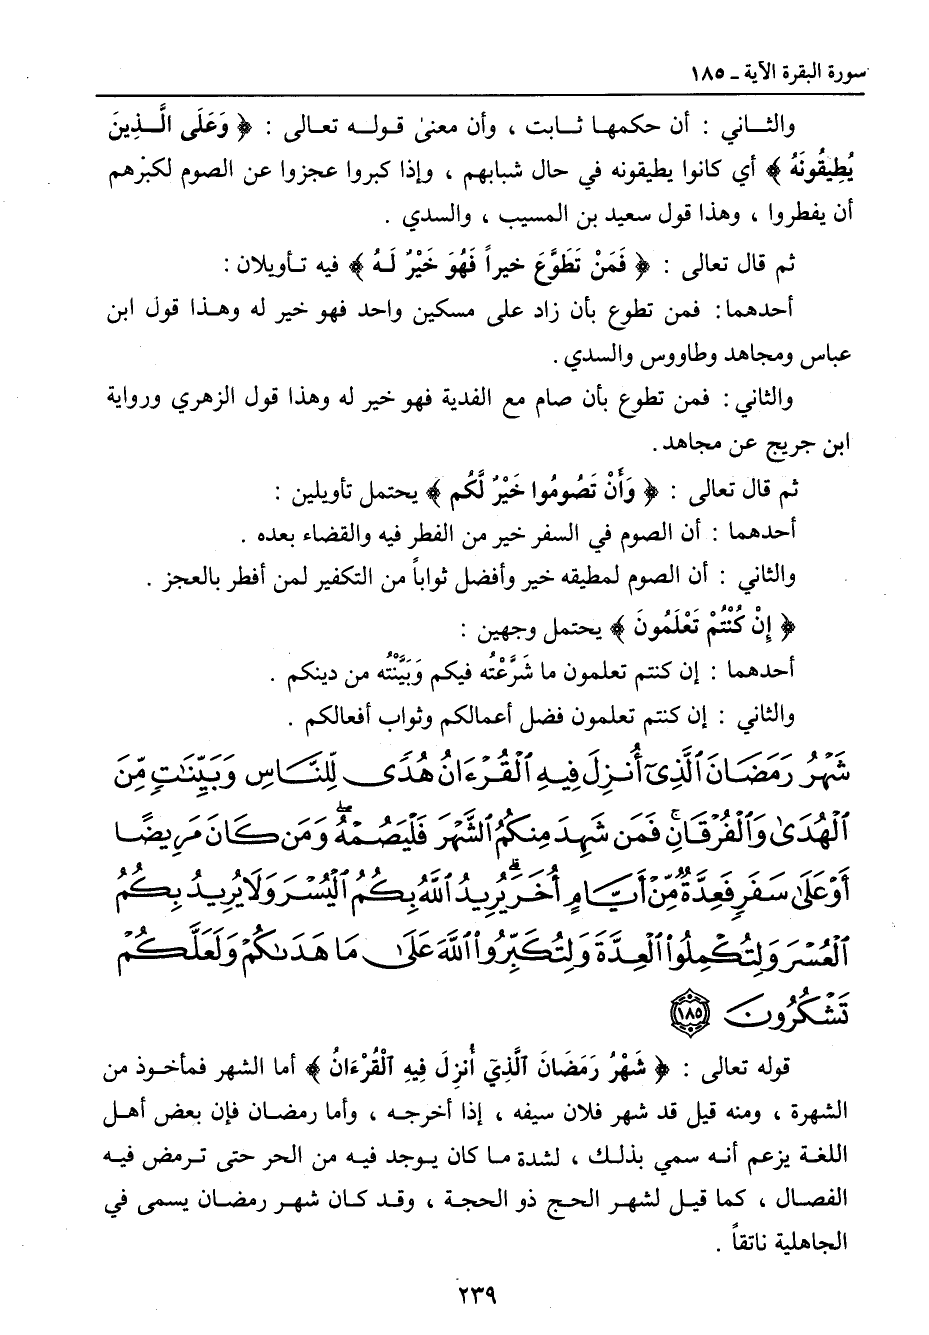 سورة البقرة الآية ـ ١٨٥
والثـاني : أن حكمها ثـابت ، وأن معنىٰ قـولـه تعـالى : ﴿ وَعَلَى الَّـذِينَ
يُطِيقُونَهُ ﴾ أي كانوا يطيقونه في حال شبابهم ، وإذا كبروا عجزوا عن الصوم لكبرْهم
أن يفطروا ، وهذا قول سعيد بن المسيب ، والسدي .
ثم قال تعالى : ﴿ فَمَنْ تَطَوَّعَ خيراً فَهُوَ خَيْرٌ لَـهُ ﴾ فيه تـأويلان :
أحدهما : فمن تطوع بأن زاد على مسكين واحد فهو خير له وهـذا قول ابن
عباس ومجاهد وطاووس والسدي .
والثاني : فمن تطوع بأن صام مع الفدية فهو خير له وهذا قول الزهري ورواية
ابن جريج عن مجاهد .
ثم قال تعالى : ﴿ وَأَنْ تَصُومُوا خَيْرٌ لَّكُم ﴾ يحتمل تأويلين :
أحدهما : أن الصوم في السفر خير من الفطر فيه والقضاء بعده .
والثاني : أن الصوم لمطيقه خير وأفضل ثواباً من التكفير لمن أفطر بالعجز .
﴿ إِنْ كُنْتُمْ تَعْلَمُونَ ﴾ يحتمل وجهين :
أحدهما : إن كنتم تعلمون ما شَرَّعْتُه فيكم وَبَيَّنْتُه من دينكم .
والثاني : إن كنتم تعلمون فضل أعمالكم وثواب أفعالكم .
شَهْرُ رَمَضَانَ ٱلَّذِىٓ أُنزِلَ فِيهِ ٱلْقُرْءَانُ هُدًى لِّلنَّاسِ وَبَيِّنَٰتٍ مِّنَ
ٱلْهُدَىٰ وَٱلْفُرْقَانِ ۚ فَمَن شَهِدَ مِنكُمُ ٱلشَّهْرَ فَلْيَصُمْهُ ۖ وَمَن كَانَ مَرِيضًا
أَوْ عَلَىٰ سَفَرٍ فَعِدَّةٌ مِّنْ أَيَّامٍ أُخَرَ ۗ يُرِيدُ ٱللَّهُ بِكُمُ ٱلْيُسْرَ وَلَا يُرِيدُ بِكُمُ
ٱلْعُسْرَ وَلِتُكْمِلُوا۟ ٱلْعِدَّةَ وَلِتُكَبِّرُوا۟ ٱللَّهَ عَلَىٰ مَا هَدَىٰكُمْ وَلَعَلَّكُمْ
تَشْكُرُونَ ١٨٥
قوله تعالى : ﴿ شَهْرُ رَمَضَانَ ٱلَّذِيٓ أُنزِلَ فِيهِ ٱلْقُرْءَانُ ﴾ أما الشهر فمأخوذ من
الشهرة ، ومنه قيل قد شهر فلان سيفه ، إذا أخرجـه ، وأما رمضـان فإن بعض أهـل
اللغـة يزعم أنـه سمي بذلـك ، لشدة مـا كان يـوجد فيـه من الحر حتى تـرمض فيـه
الفصال ، كما قيل لشهر الحـج ذو الحجـة ، وقـد كـان شهر رمضـان يسمى في
الجاهلية ناتقاً .
٢٣٩